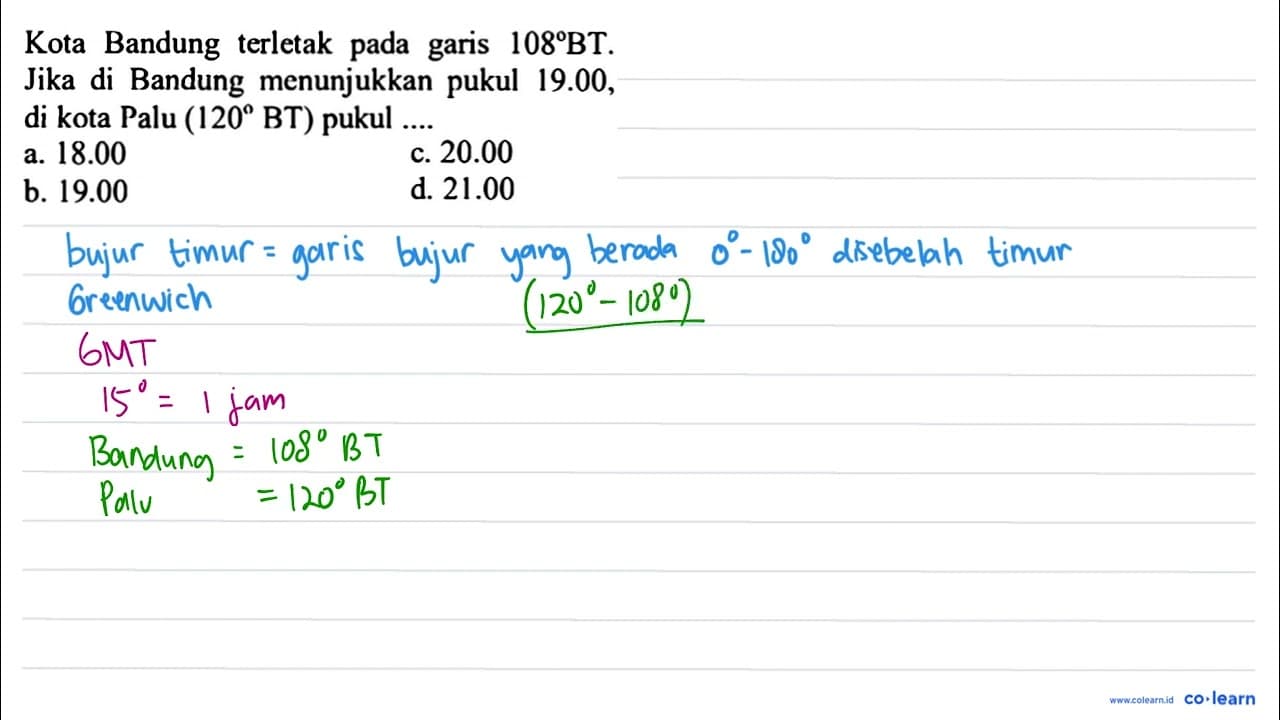 Kota Bandung terletak pada garis 108°BT.
Jika di Bandung menunjukkan pukul 19.00,
di kota Palu (120° BT) pukul ....
a. 18.00 c. 20.00
b. 19.00 d. 21.00
bujur timur = garis bujur yang berada 0° - 180° disebelah timur
Greenwich (120° - 108°)
GMT
15° = 1 jam
Bandung = 108° BT
Palu = 120° BT
www.colearn.id co·learn